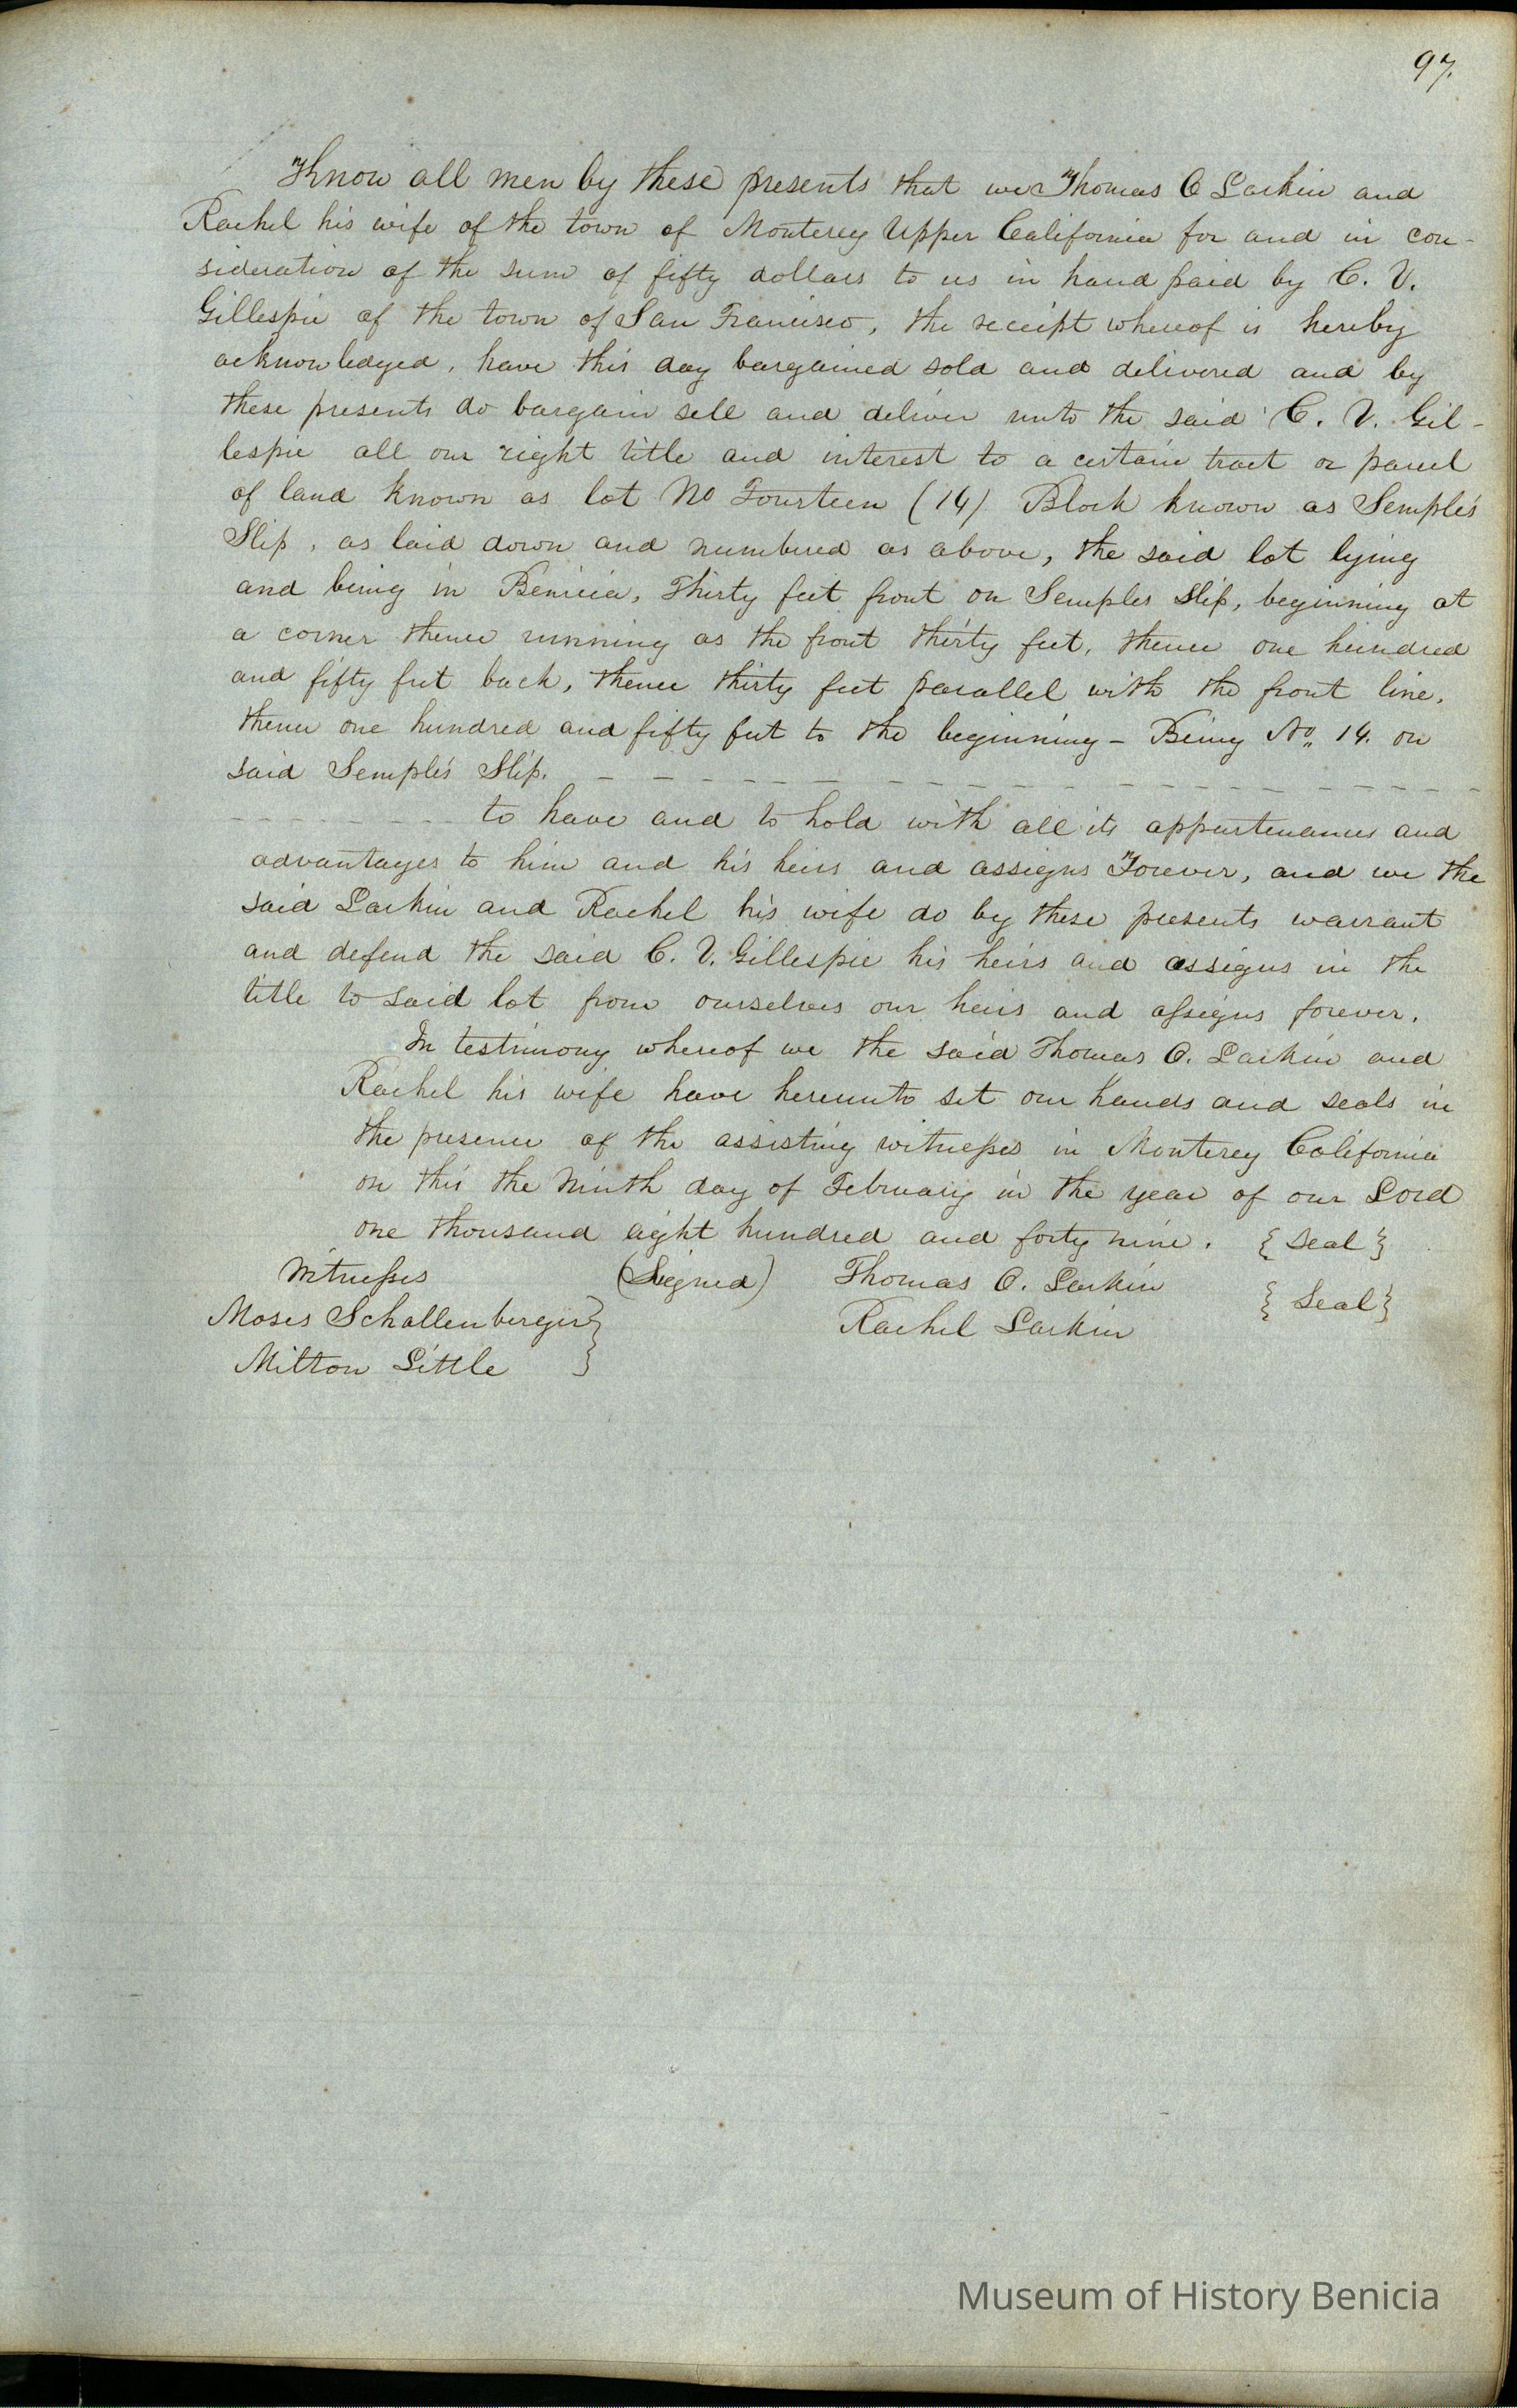 97.
Know all men by these presents that we Thomas O Larkin and
Rachel his wife of the town of Monterey Upper California for and in con-
sideration of the sum of fifty dollars to us in hand paid by C. V.
Gillespie of the town of San Francisco, the receipt whereof is hereby
acknowledged, have this day bargained sold and delivered and by
these presents do bargain sell and deliver unto the said C. V. Gil-
lespie all our right title and interest to a certain tract or parcel
of land known as lot No Fourteen (14) Block known as Semple's
Slip, as laid down and numbered as above, the said lot lying
and being in Benicia, Thirty feet front on Semples Slip, beginning at
a corner thence running as the front thirty feet, thence one hundred
and fifty feet back, thence thirty feet parallel with the front line,
thence one hundred and fifty feet to the beginning - Being No. 14. on
said Semple's Slip. - - - - - - - - - - - - - - - - -
- - - - - - - - to have and to hold with all its appurtenances and
advantages to him and his heirs and assigns Forever, and we the
said Larkin and Rachel his wife do by these presents warrant
and defend the said C. V. Gillespie his heirs and assigns in the
title to said lot from ourselves our heirs and assigns forever.
In testimony whereof we the said Thomas O. Larkin and
Rachel his wife have hereunto set our hands and seals in
the presence of the assisting witnesses in Monterey California
on this the Ninth day of February in the year of our Lord
one thousand eight hundred and forty nine. {Seal}
Witnesses (Signed) Thomas O. Larkin {Seal}
Moses Schallenberger} Rachel Larkin
Milton Little }
Museum of History Benicia